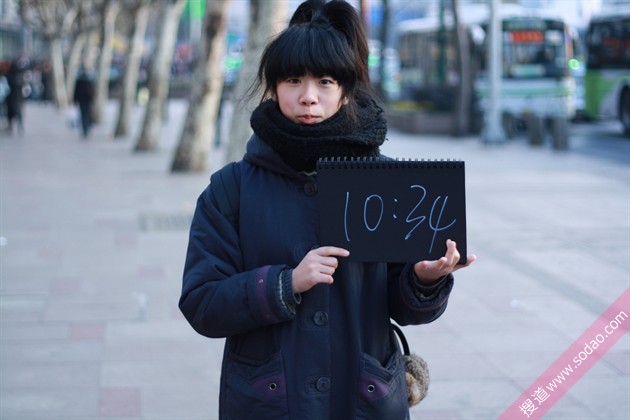 10:34
搜道 www.sodao.com